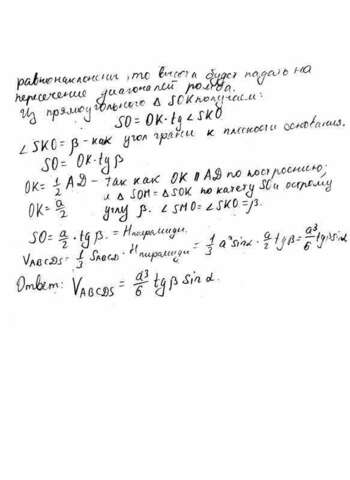 равнонаклонены, то высота будет падать на
пересечение диагоналей ромба.
Из прямоугольного △ SOK получаем:
SO = OK · tg ∠ SKO
∠ SKO = β - как угол грани к плоскости основания.
SO = OK · tg β
OK = 1/2 AD - Так как OK ∥ AD по построению;
и △ SOM = △ SOK по катету SO и острому
OK = a/2 углу β. ∠ SMO = ∠ SKO = β.
SO = a/2 · tg β. = H пирамиды.
V ABCDS = 1/3 S ABCD · H пирамиды = 1/3 a² sin α · a/2 tg β = a³/6 tg β sin α
Ответ: V ABCDS = a³/6 tg β sin α.